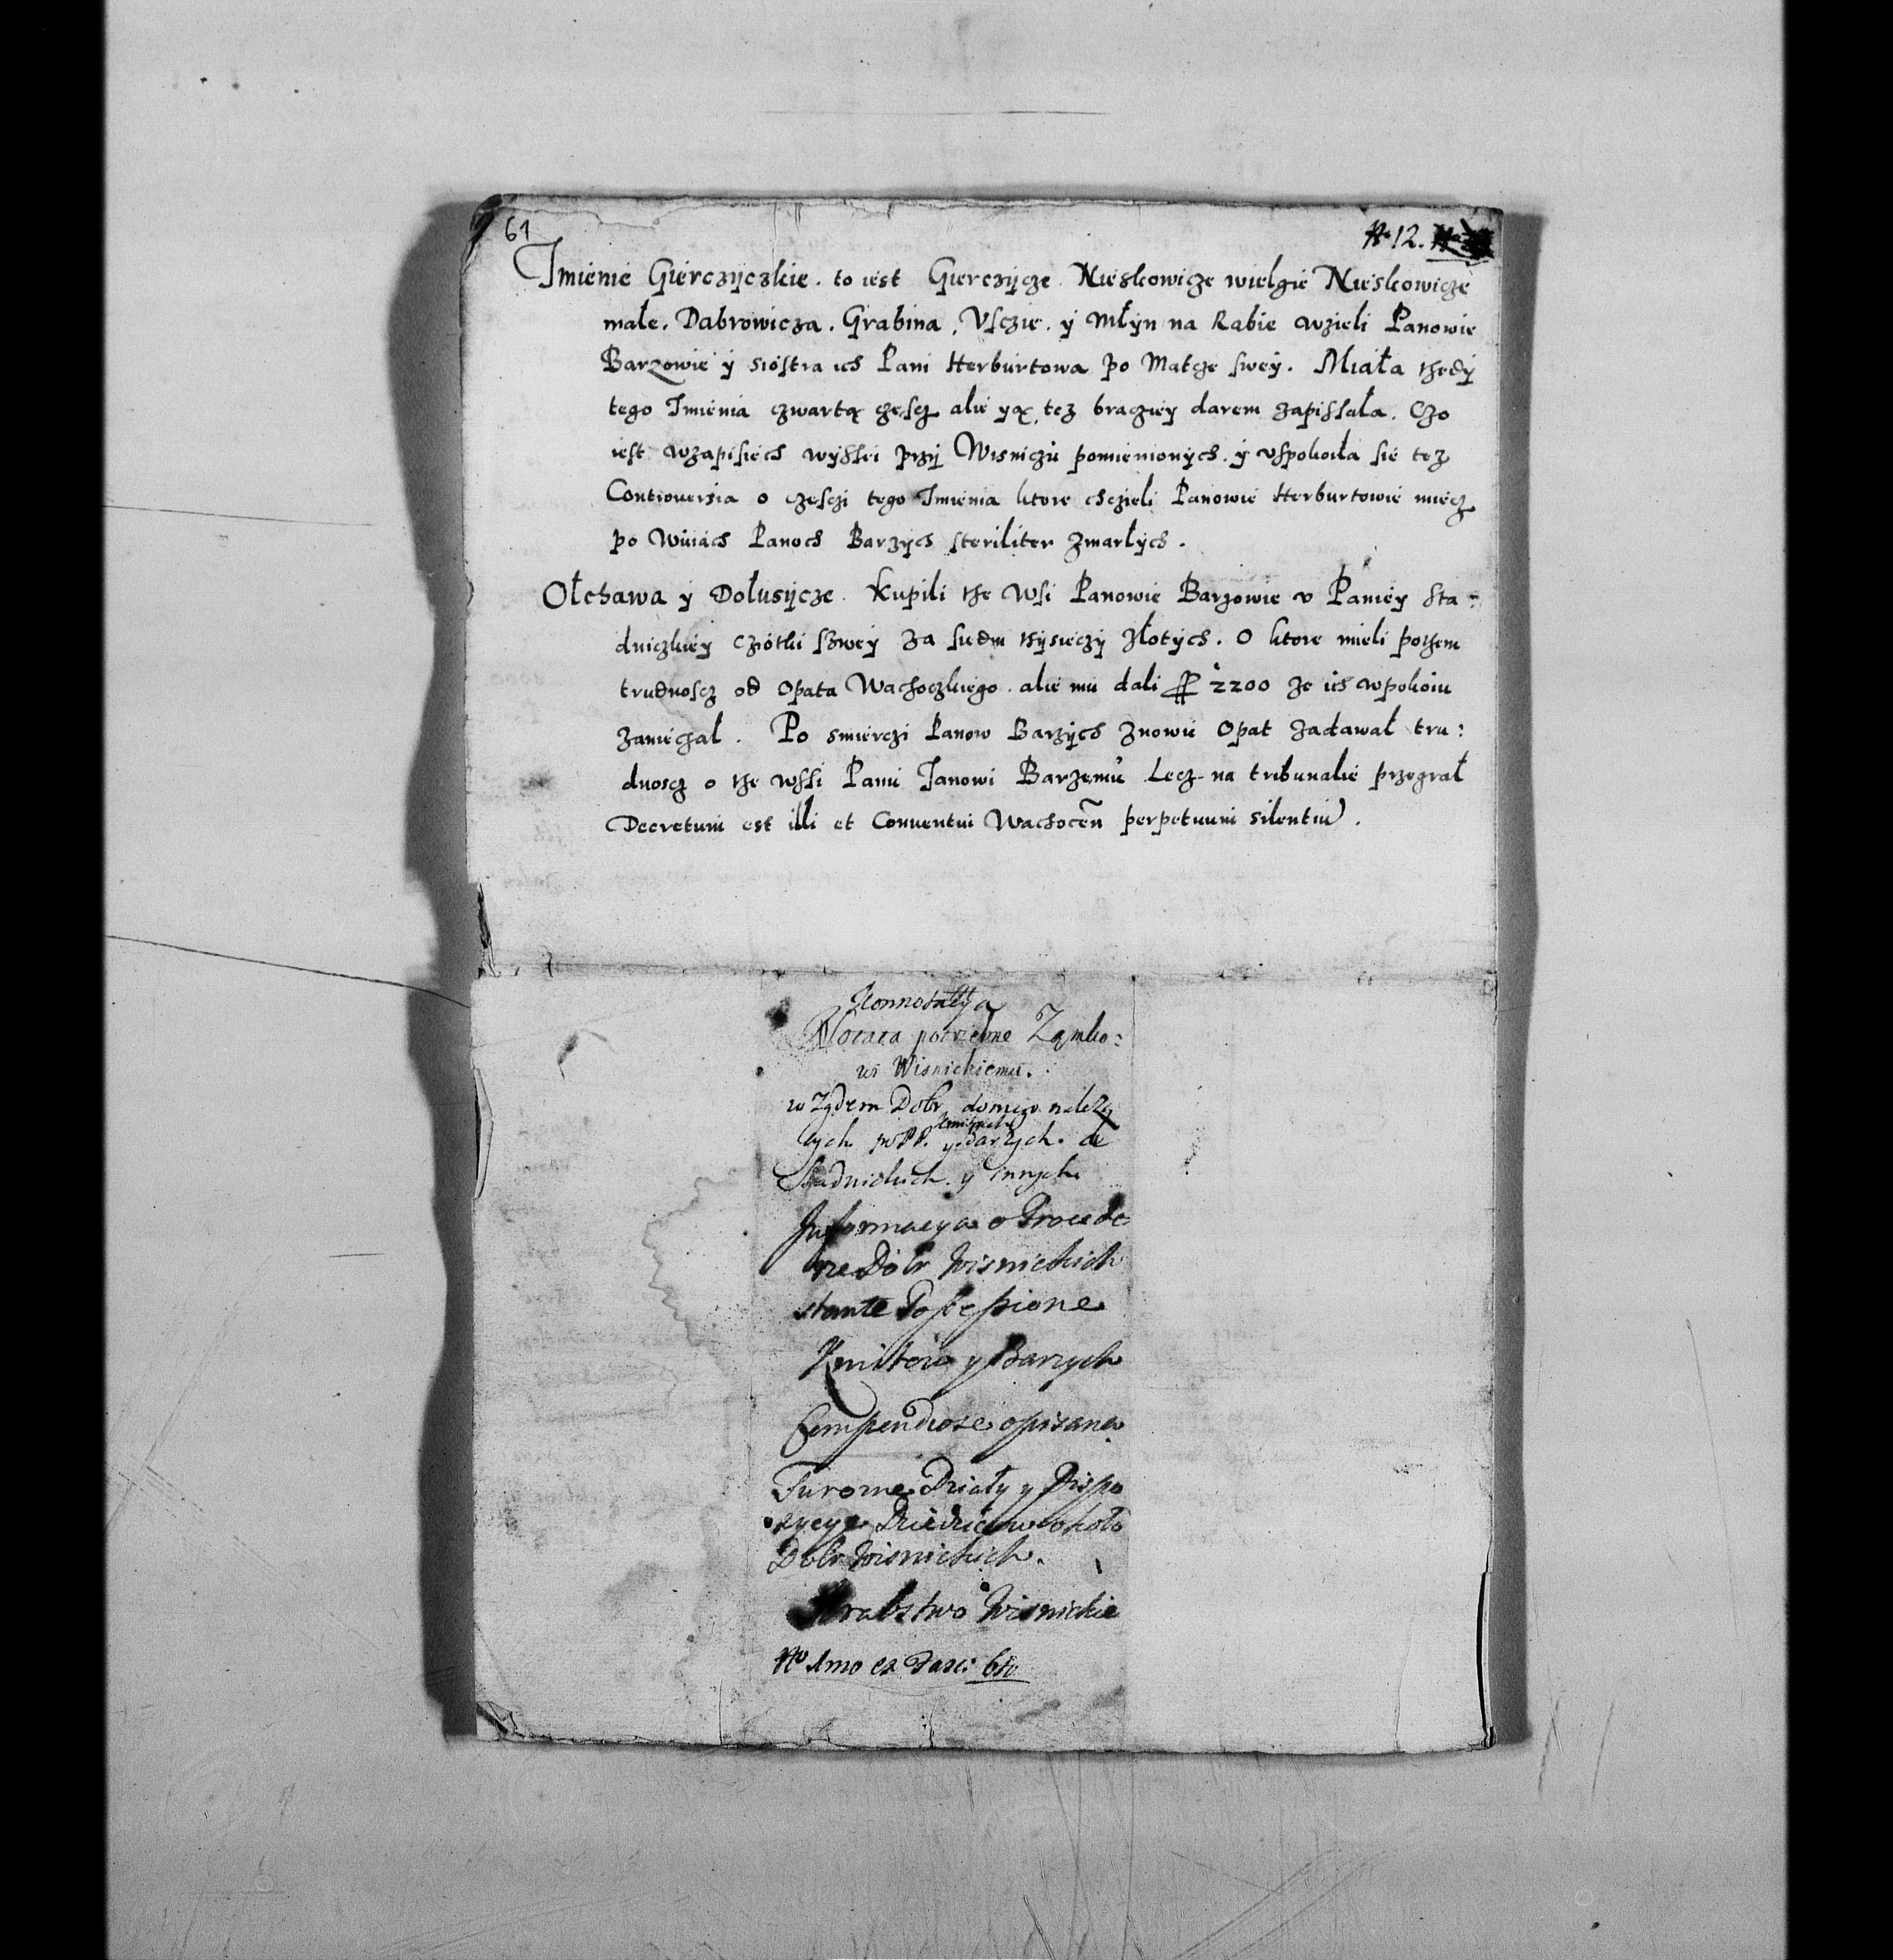 61
No 12.
Imienie Gierczyczkie. to iest Gierczycze Nieskowicze wielgie Nieskowicze
małe. Dabrowicza. Grabina, Vsczie. y Młyn na Rabie wzieli Panowie
Barzowie y siostra ich Pani Herburtowa po Matcze swey. Miała thedy
tego Imienia czwartą czescz alie yą tez braciey darem zapissała. Czo
iest wzapisiech wyssei przy Wisniczu pomienionych. y vspokoiła sie tez
Controversia o czesczi tego Imienia ktore chczieli Panowie Herburtowie miecz
po Wuiach Panoch Barzych steriliter zmarłych.
Olchawa y Dołusycze. Kupili the Wsi Panowie Barzowie v Paniey Sta:
dniczkiey cziotki szwey za siedm thysieczy złotych. O ktore mieli pothem
trudnoscz od Opata Wachoczkiego. alie mu dali 2200 ze ich wpokoiu
zaniechał. Po smierczi Panow Barzych znowu Opat zadawał tru:
dnoscz o the wssi Panu Janowi Barzemu Lecz na tribunalie przegrał
Decretum est illi et Conuentui Wachocen perpetuum silentiu.
Konnotatya
potrzebne Zamko:
wi Wisnickiemu.
Dobr domowi należą
cych Kmitach
y Barzych. de
Stadnickich y innych
Informacya o Procede
rze Dóbr Wisnickich
stante Possessione
Kmitow y Barzych
Compendiose opisana
Jurowe Działy y Dispo
zycye Dziedzicow około
Dobr Wisnickich.
Hrabstwo Wisnickie
No 1mo ex Fasci: 6to